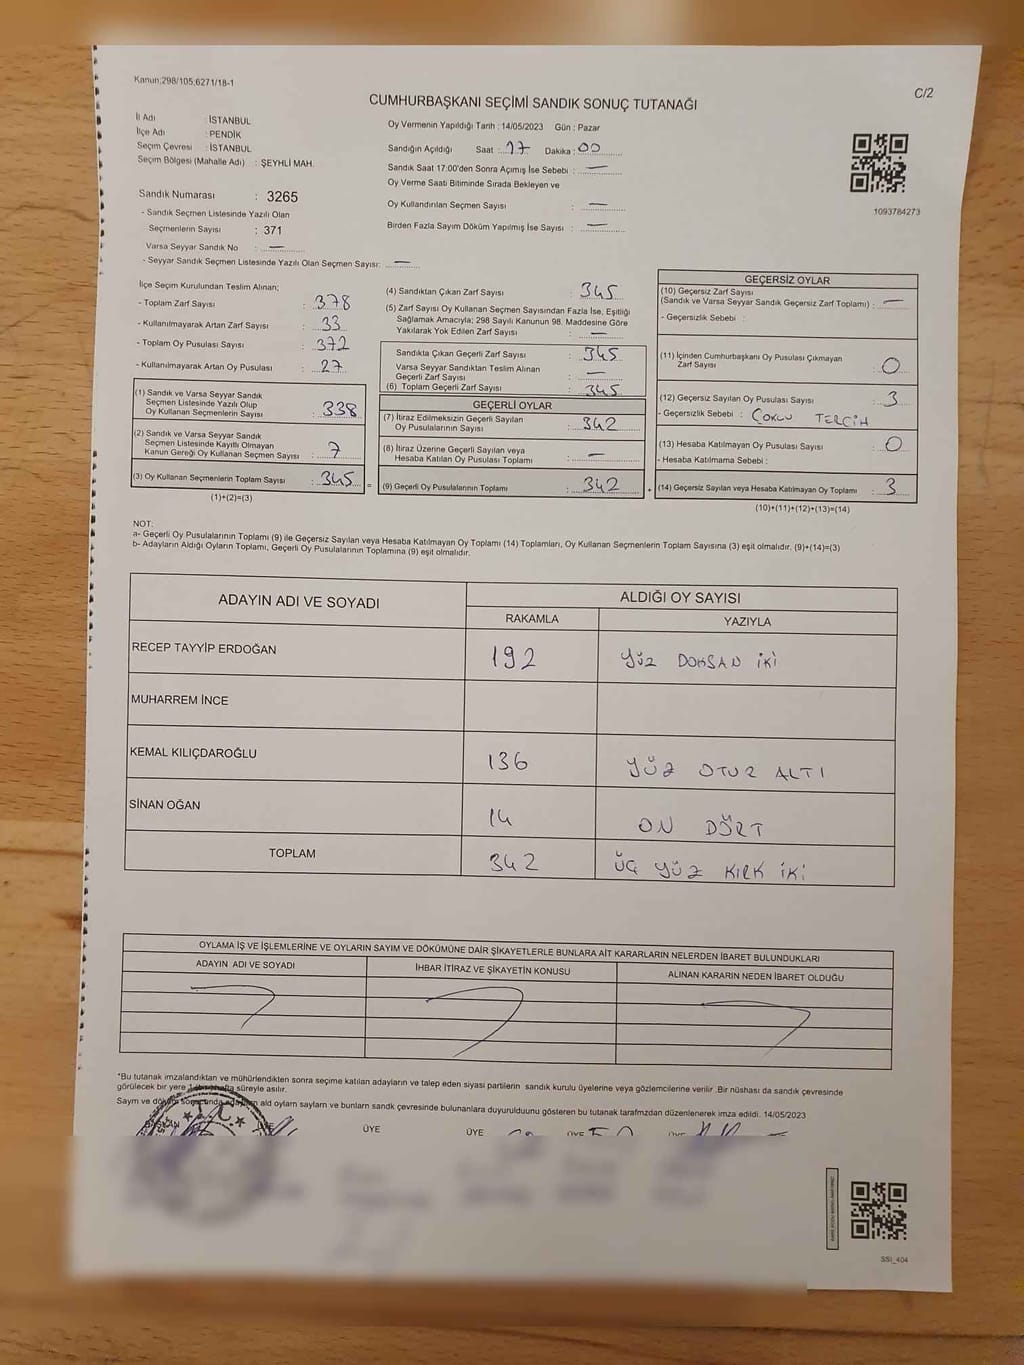 Kanun;298/105;6271/18-1
C/2
CUMHURBAŞKANI SEÇİMİ SANDIK SONUÇ TUTANAĞI
İl Adı : İSTANBUL
İlçe Adı : PENDİK
Seçim Çevresi : İSTANBUL
Seçim Bölgesi (Mahalle Adı) : ŞEYHLİ MAH.
Sandık Numarası : 3265
- Sandık Seçmen Listesinde Yazılı Olan
Seçmenlerin Sayısı : 371
Varsa Seyyar Sandık No : —
- Seyyar Sandık Seçmen Listesinde Yazılı Olan Seçmen Sayısı: —
Oy Vermenin Yapıldığı Tarih : 14/05/2023 Gün : Pazar
Sandığın Açıldığı Saat : 17 Dakika : 00
Sandık Saat 17:00'den Sonra Açımış İse Sebebi : —
Oy Verme Saati Bitiminde Sırada Bekleyen ve
Oy Kullandırılan Seçmen Sayısı : —
Birden Fazla Sayım Döküm Yapılmış İse Sayısı : —
1093784273
İlçe Seçim Kurulundan Teslim Alınan;
- Toplam Zarf Sayısı : 378
- Kullanılmayarak Artan Zarf Sayısı : 33
- Toplam Oy Pusulası Sayısı : 372
- Kullanılmayarak Artan Oy Pusulası : 27
(1) Sandık ve Varsa Seyyar Sandık
Seçmen Listesinde Yazılı Olup
Oy Kullanan Seçmenlerin Sayısı : 338
(2) Sandık ve Varsa Seyyar Sandık
Seçmen Listesinde Kayıtlı Olmayan
Kanun Gereği Oy Kullanan Seçmen Sayısı : 7
(3) Oy Kullanan Seçmenlerin Toplam Sayısı : 345 =
(1)+(2)=(3)
(4) Sandıktan Çıkan Zarf Sayısı : 345
(5) Zarf Sayısı Oy Kullanan Seçmen Sayısından Fazla İse, Eşitliği
Sağlamak Amacıyla; 298 Sayılı Kanunun 98. Maddesine Göre
Yakılarak Yok Edilen Zarf Sayısı : —
Sandıkta Çıkan Geçerli Zarf Sayısı : 345
Varsa Seyyar Sandıktan Teslim Alınan
Geçerli Zarf Sayısı : —
(6) Toplam Geçerli Zarf Sayısı : 345
GEÇERLİ OYLAR
(7) İtiraz Edilmeksizin Geçerli Sayılan
Oy Pusulalarının Sayısı : 342
(8) İtiraz Üzerine Geçerli Sayılan veya
Hesaba Katılan Oy Pusulası Toplamı : —
(9) Geçerli Oy Pusulalarının Toplamı : 342 +
GEÇERSİZ OYLAR
(10) Geçersiz Zarf Sayısı
(Sandık ve Varsa Seyyar Sandık Geçersiz Zarf Toplamı) : —
- Geçersizlik Sebebi :
(11) İçinden Cumhurbaşkanı Oy Pusulası Çıkmayan
Zarf Sayısı : 0
(12) Geçersiz Sayılan Oy Pusulası Sayısı : 3
- Geçersizlik Sebebi : ÇOKLU TERCİH
(13) Hesaba Katılmayan Oy Pusulası Sayısı : 0
- Hesaba Katılmama Sebebi :
(14) Geçersiz Sayılan veya Hesaba Katılmayan Oy Toplamı : 3
(10)+(11)+(12)+(13)=(14)
NOT:
a- Geçerli Oy Pusulalarının Toplamı (9) ile Geçersiz Sayılan veya Hesaba Katılmayan Oy Toplamı (14) Toplamları, Oy Kullanan Seçmenlerin Toplam Sayısına (3) eşit olmalıdır. (9)+(14)=(3)
b- Adayların Aldığı Oyların Toplamı, Geçerli Oy Pusulalarının Toplamına (9) eşit olmalıdır.
ADAYIN ADI VE SOYADI ALDIĞI OY SAYISI
RAKAMLA YAZIYLA
RECEP TAYYİP ERDOĞAN 192 YÜZ DOKSAN İKİ
MUHARREM İNCE
KEMAL KILIÇDAROĞLU 136 YÜZ OTUZ ALTI
SİNAN OĞAN 14 ON DÖRT
TOPLAM 342 ÜÇ YÜZ KIRK İKİ
OYLAMA İŞ VE İŞLEMLERİNE VE OYLARIN SAYIM VE DÖKÜMÜNE DAİR ŞİKAYETLERLE BUNLARA AİT KARARLARIN NELERDEN İBARET BULUNDUKLARI
ADAYIN ADI VE SOYADI İHBAR İTİRAZ VE ŞİKAYETİN KONUSU ALINAN KARARIN NEDEN İBARET OLDUĞU
*Bu tutanak imzalandıktan ve mühürlendikten sonra seçime katılan adayların ve talep eden siyasi partilerin sandık kurulu üyelerine veya gözlemcilerine verilir .Bir nüshası da sandık çevresinde
görülecek bir yere hafta süreyle asılır.
Sayım ve döküm sonucunda ald oyların sayların ve bunların sandık çevresinde bulunanlara duyurulduunu gösteren bu tutanak tarafmzdan düzenlenerek imza edildi. 14/05/2023
BAŞKAN ÜYE ÜYE ÜYE ÜYE ÜYE
T.C.
SSI_404